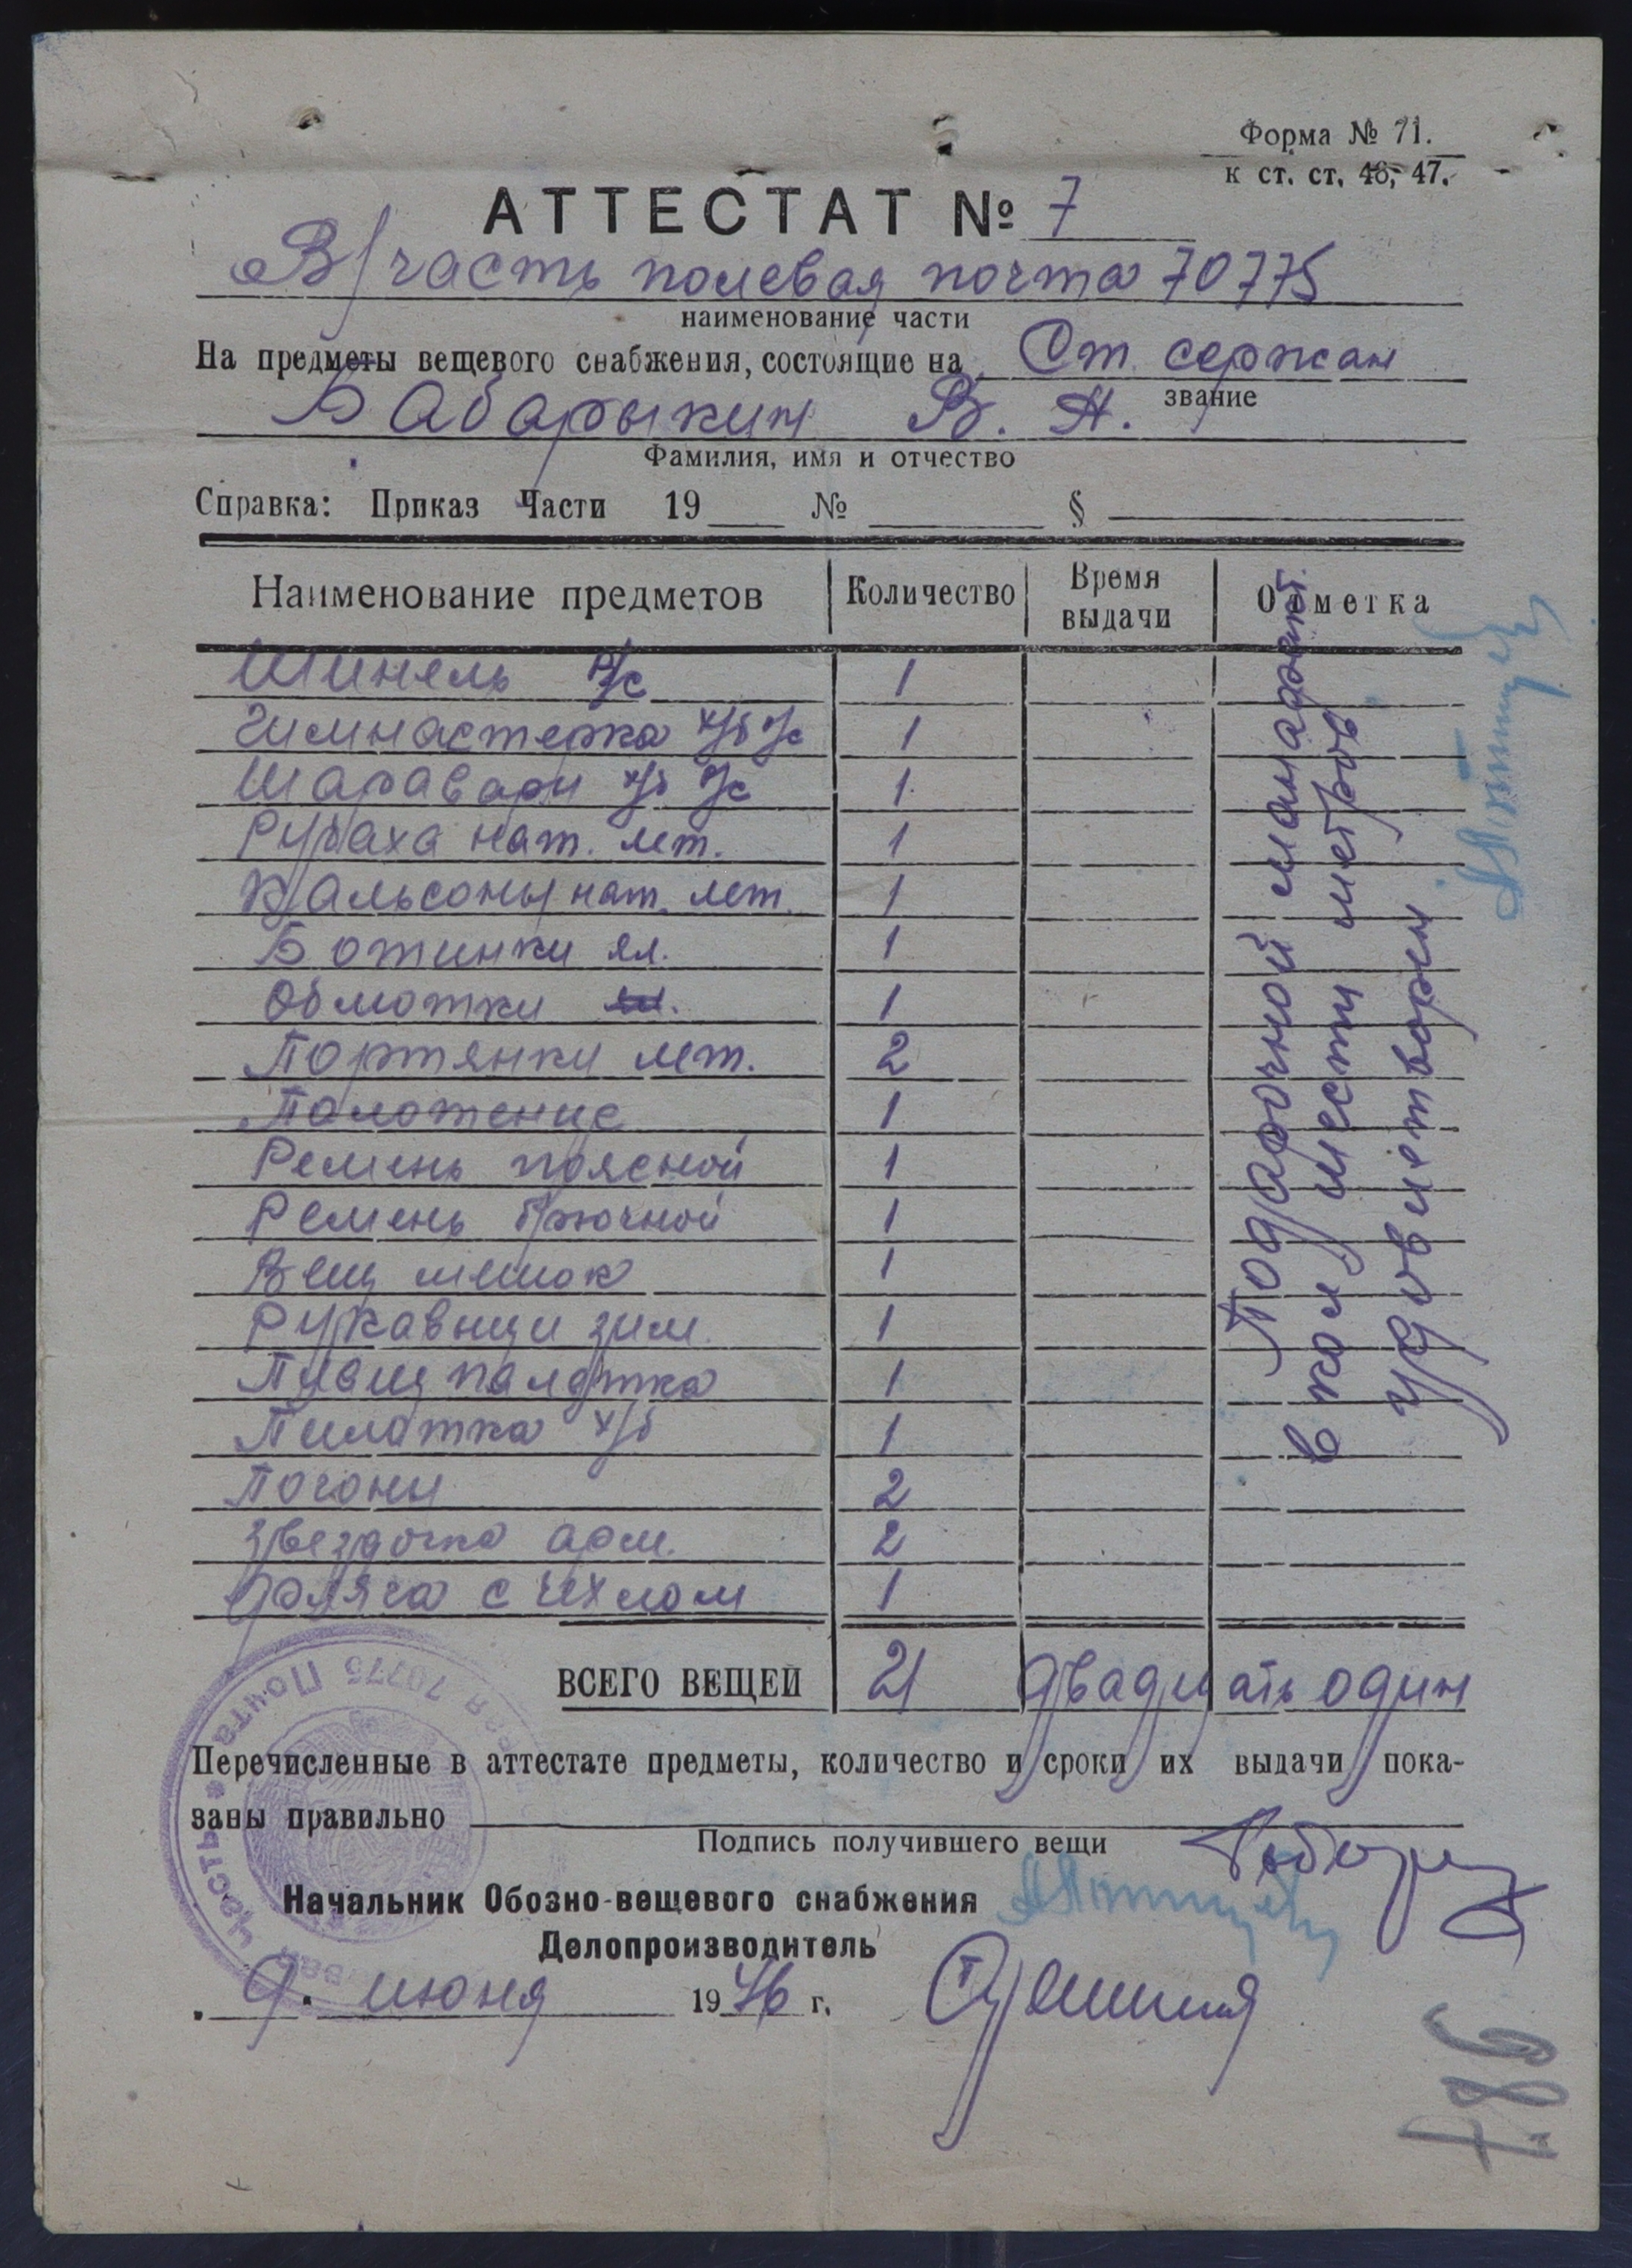 Форма № 71.
к ст. ст. 46, 47.
АТТЕСТАТ № 7
В/часть полевая почта 70775
наименование части
На предметы вещевого снабжения, состоящие на Ст. сержан
звание
Бабарыкин В. А.
Фамилия, имя и отчество
Справка: Приказ Части 19 № §
Наименование предметов Количество Время выдачи Отметка
Шинель р/с 1
Гимнастерка х/б р/с 1
Шаравари х/б р/с 1
Рубаха нат. лет. 1
Кальсоны нат. лет. 1
Ботинки ял. 1
Обмотки 1
Портянки лет. 2
Полотенце 1
Ремень поясной 1
Ремень брючной 1
Вещ мешок 1
Рукавицы зим. 1
Плащ палатка 1
Пилотка х/б 1
Погоны 2
Звездочка арм. 2
Фляга с чехлом 1
Подарочной мануфакт.
в кол шести метров
удовлетворен
ВСЕГО ВЕЩЕЙ 21 двадцать один
Перечисленные в аттестате предметы, количество и сроки их выдачи пока-
заны правильно
Подпись получившего вещи
Начальник Обозно-вещевого снабжения
Делопроизводитель
9. июня 1946 г.
Часть * Почта 70775
786